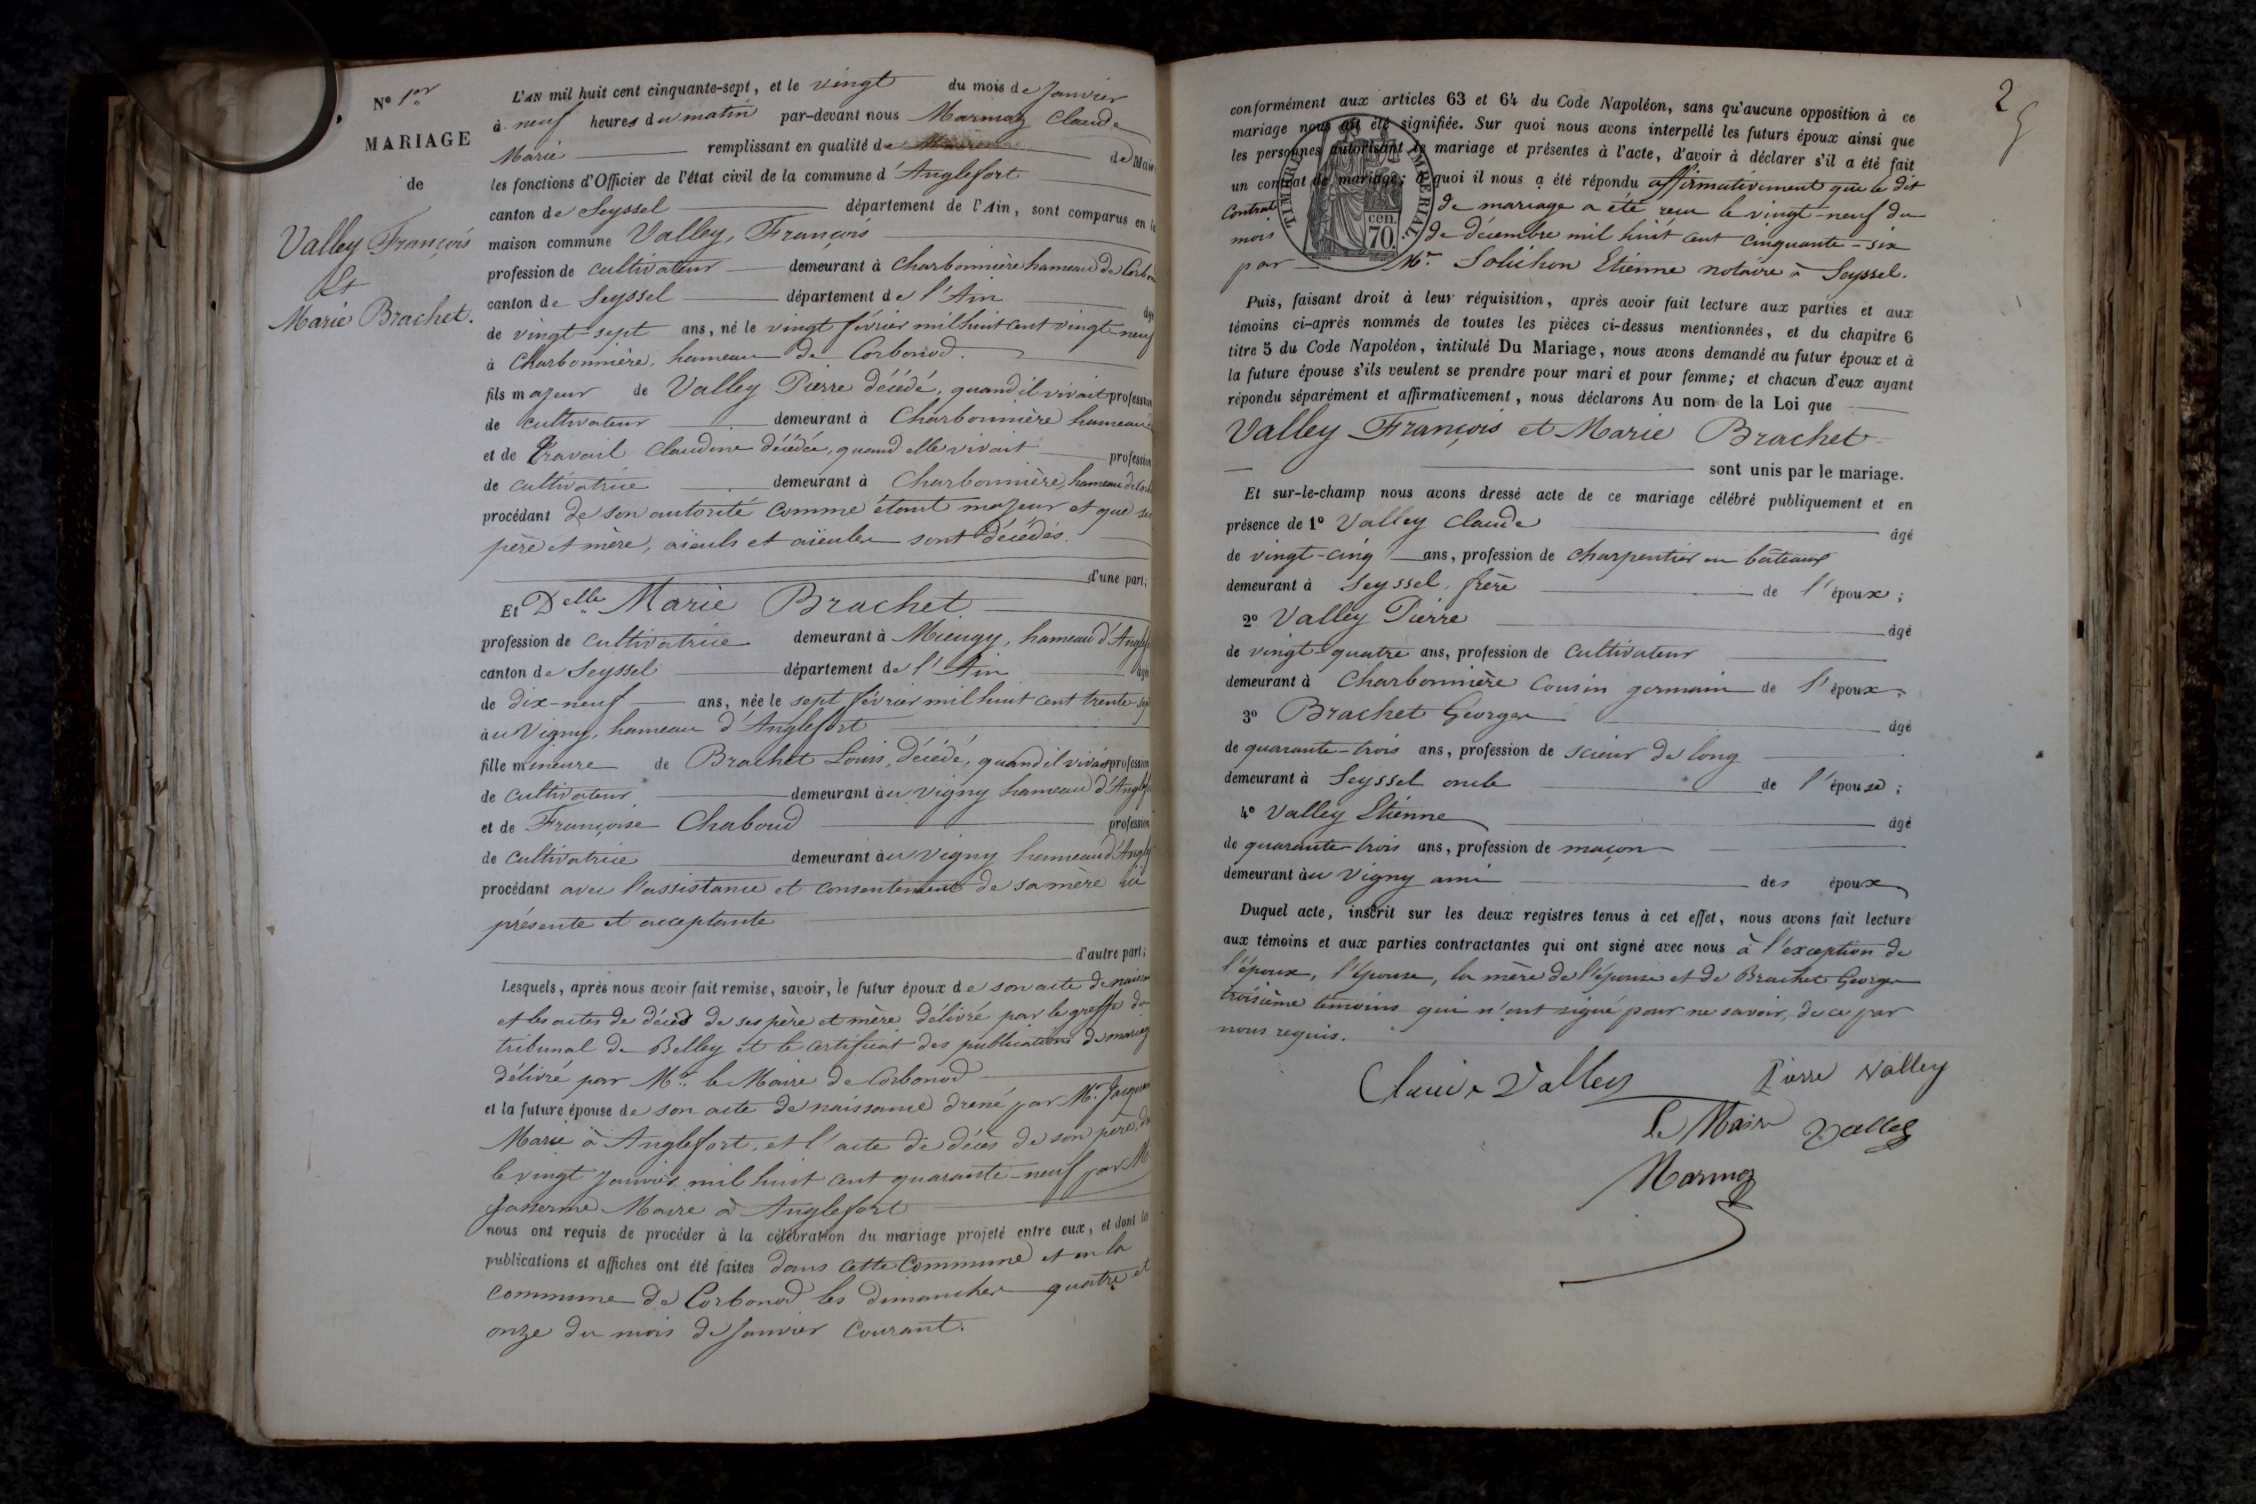 N° 1er
MARIAGE
de
Valley François
Et
Marie Brachet.
L'AN mil huit cent cinquante-sept, et le vingt du mois de Janvier
à neuf heures du matin par-devant nous Marmoz Claude
Marie remplissant en qualité de de Maire
les fonctions d'Officier de l'état civil de la commune d'Anglefort
canton de Seyssel département de l'Ain, sont comparus en la
maison commune Valley, François
profession de cultivateur demeurant à Charbonnière hameau de Corbon
canton de Seyssel département de l'Ain âgé
de vingt-sept ans, né le vingt février mil huit cent vingt-neuf
à Charbonnière, hameau de Corbonod.
fils majeur de Valley Pierre décédé, quand il vivait profession
de cultivateur demeurant à Charbonnière hameau
et de Travail Claudine décédée, quand elle vivait profession
de cultivatrice demeurant à Charbonnière, hameau de Corb
procédant de son autorité comme étant majeur et que ses
père et mère, aïeuls et aïeules sont décédés.
d'une part;
Et Delle Marie Brachet
profession de cultivatrice demeurant à Mieugy, hameau d'Anglef
canton de Seyssel département de l'Ain âgée
de dix-neuf ans, née le sept février mil huit cent trente-sept
au Vigny, hameau d'Anglefort
fille mineure de Brachet Louis, décédé, quand il vivait profession
de cultivateur demeurant au Vigny hameau d'Anglef
et de Françoise Chaboud profession
de cultivatrice demeurant au Vigny hameau d'Anglef
procédant avec l'assistance et consentement de sa mère ici
présente et acceptante
d'autre part;
Lesquels, après nous avoir fait remise, savoir, le futur époux de son acte de naissan
et les actes de décès de ses père et mère délivré par le greffe du
tribunal de Belley et le certificat des publications de mariag
délivré par Mr. le Maire de Corbonod
et la future épouse de son acte de naissance dressé par Mr.
Maire à Anglefort, et l'acte de décès de son père, du
le vingt janvier mil huit cent quarante-neuf par M
Maire à Anglefort
nous ont requis de procéder à la célébration du mariage projeté entre eux, et dont les
publications et affiches ont été faites dans cette Commune et en la
commune de Corbonod les dimanches quatre et
onze du mois de Janvier Courant.
2
conformément aux articles 63 et 64 du Code Napoléon, sans qu'aucune opposition à ce
mariage nous ait été signifiée. Sur quoi nous avons interpellé les futurs époux ainsi que
les personnes autorisant le mariage et présentes à l'acte, d'avoir à déclarer s'il a été fait
un contrat de mariage; à quoi il nous a été répondu affirmativement que le dit
Contrat de mariage a été reçu le vingt-neuf du
mois de décembre mil huit cent cinquante-six
par Mr. Solichon Etienne notaire à Seyssel.
TIMBRE IMPERIAL
cen.
70.
Puis, faisant droit à leur réquisition, après avoir fait lecture aux parties et aux
témoins ci-après nommés de toutes les pièces ci-dessus mentionnées, et du chapitre 6
titre 5 du Code Napoléon, intitulé Du Mariage, nous avons demandé au futur époux et à
la future épouse s'ils veulent se prendre pour mari et pour femme; et chacun d'eux ayant
répondu séparément et affirmativement, nous déclarons Au nom de la Loi que
Valley François et Marie Brachet
sont unis par le mariage.
Et sur-le-champ nous avons dressé acte de ce mariage célébré publiquement et en
présence de 1° Valley Claude âgé
de vingt-cinq ans, profession de charpentier en bateaux
demeurant à Seyssel, frère de l'époux;
2° Valley Pierre âgé
de vingt-quatre ans, profession de cultivateur
demeurant à Charbonnière Cousin germain de l'époux;
3° Brachet George âgé
de quarante-trois ans, profession de scieur de long
demeurant à Seyssel oncle de l'épouse;
4° Valley Etienne âgé
de quarante-trois ans, profession de maçon
demeurant au Vigny ami des époux
Duquel acte, inscrit sur les deux registres tenus à cet effet, nous avons fait lecture
aux témoins et aux parties contractantes qui ont signé avec nous à l'exception de
l'époux, l'épouse, la mère de l'épouse et de Brachet George
troisième témoins qui n'ont signé pour ne savoir, de ce par
nous requis.
Claude Valley Pierre Valley
Le Maire Valley
Marmoz